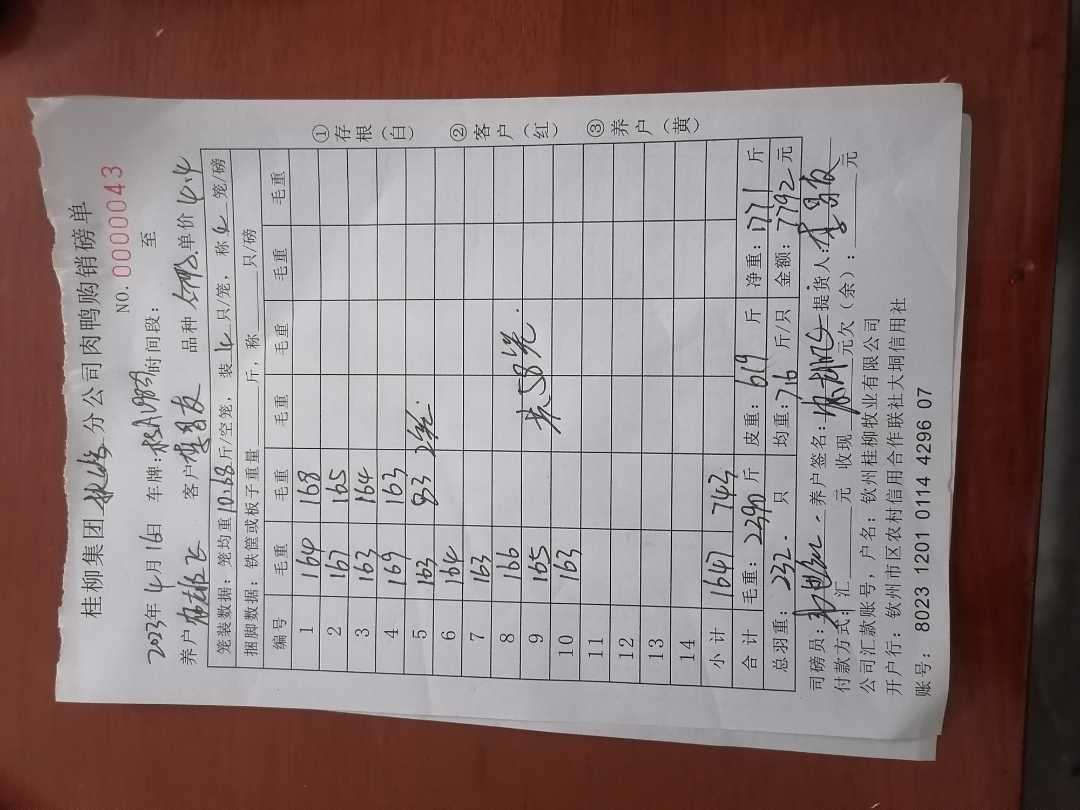 桂柳集团 分公司肉鸭购销磅单
NO. 0000043
2023年4月16日 车牌: 时间段: 至
养户 客户 友 品种 单价 4.4
笼装数据:笼均重10.68斤/空笼,装4只/笼,称6笼/磅
捆脚数据:铁筐或板子重量 斤,称 只/磅
编号 毛重 毛重 毛重 毛重 毛重 毛重
1 164 168
2 167 165
3 163 164
4 169 163
5 163 83 2笼
6 164
7 163
8 166 共58笼.
9 165
10 163
11
12
13
14
小计 1647 743
合计 毛重:2390斤 皮重:619斤 净重:1771斤
总羽重:232.只 均重:7.6斤/只 金额:7792元
司磅员: 养户签名: 提货人: 友
付款方式:汇 元 收现 元欠(余): 元
公司汇款账号,户名:钦州桂柳牧业有限公司
开户行:钦州市区农村信用合作联社大垌信用社
账号:8023 1201 0114 4296 07
①存根(白) ②客户(红) ③养户(黄)